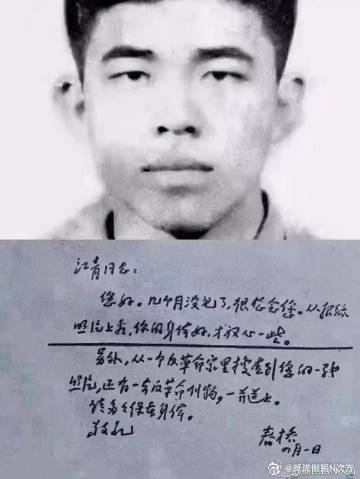 江青同志：
您好。几个月没见了，很想念您。从报纸
照片上看，你的身体好，才放心一些。
另外，从一个反革命家里搜查到您的一张
照片，还有一本反革命刊物，一并送上。
请多多保重身体。
敬礼
春桥
月一日
N次方